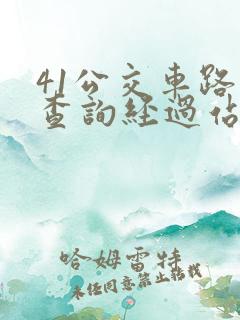 41公交車路
查詢經過佔
哈姆雷特
未经同意禁止转载